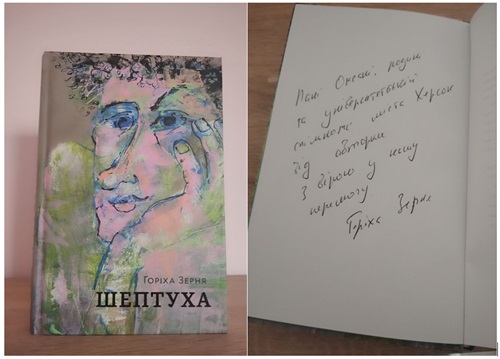 Горіха Зерня
ШЕПТУХА
Пані Оксані, родині
та університетській
спільноті міста Херсон
від авторки
З вірою у нашу
перемогу
Горіха Зерня